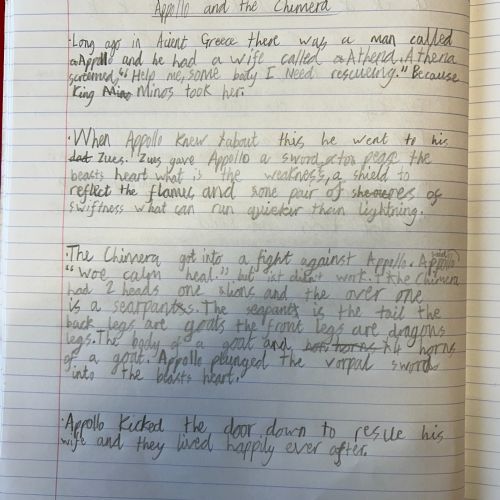 Appollo and the Chimera
·Long ago in Acient Greece there was a man called
Appollo and he had a wife called Athena. Athena
screamed, "Help me, some body I need rescueing." Because
King Minos took her.
·When Appollo knew about this he went to his
dad Zues. Zues gave Appollo a sword, to pease the
beasts heart what is the weakness, a shield to
reflect the flames and some pair of shoes of
swiftness what can run quicker than lightning.
·The Chimera got into a fight against Appollo. Appollo said
"woe calm heal." but it didn't work. The Chimera
had 2 heads one lions and the over one
is a searpants. The seapant is the tail the
back legs are goats the front legs are dragons
legs. The body of a goat and 4 horns
of a goat. Appollo plunged the vorpal sword
into the beasts heart.
·Appollo kicked the door down to resue his
wife and they lived happily ever after.